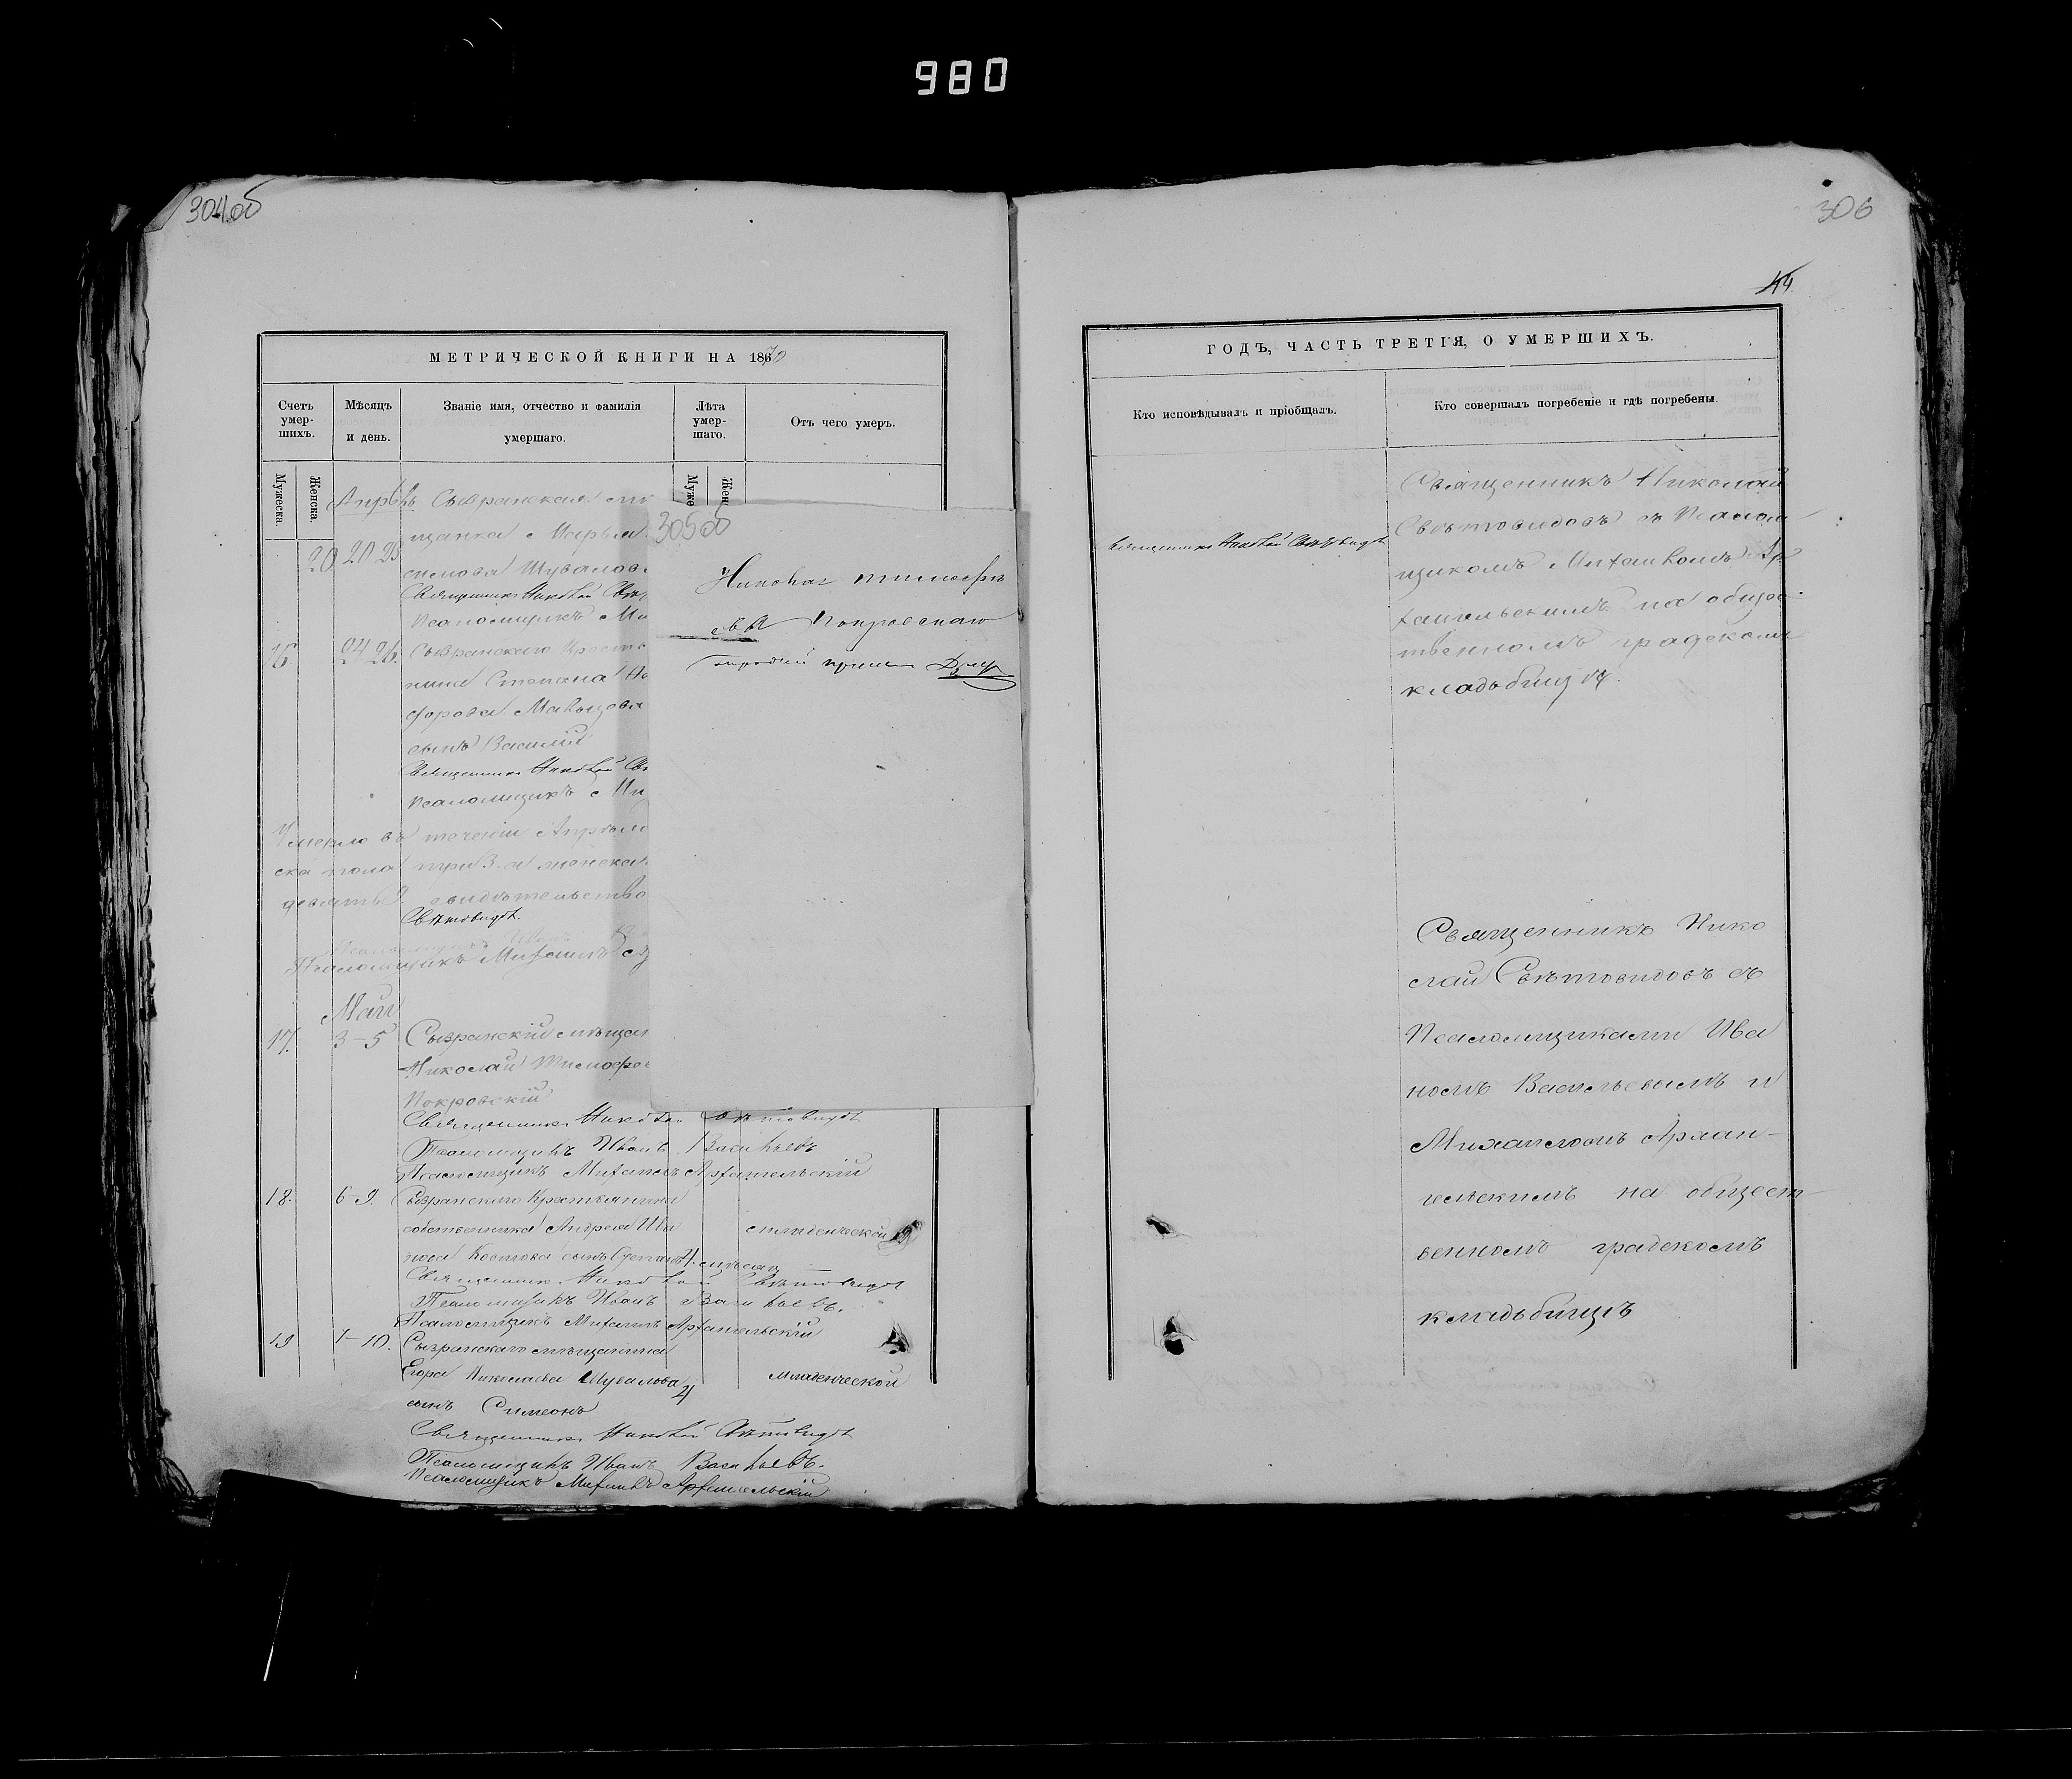 980
304об
МЕТРИЧЕСКОЙ КНИГИ НА 1870
Счетъ умер-шихъ.
Мѣсяцъ и день.
Званіе имя, отчество и фамилія умершаго.
Лѣта умер-шаго.
Отъ чего умеръ.
Мужеска.
Женска.
Муже
Жен
Апрѣль Сызранская мѣ
щанка Марья
20 20 23
Шувалова
Священникъ Николай Свѣт
Псаломщикъ Ми
16. 24 26. Сызранскаго Кресть
нина Степана
форова
сынъ Василій
Священникъ Николай Св
Псаломщикъ Ми
Умерло въ теченіи Апрѣля
ска пола три 3. а женска
девять 9. свидѣтельство
Свѣтовидов.
Псаломщикъ Михаилъ
Май
17. 3-5 Сызранскій мѣщан
Николай Тимофее
Покровскій
Священникъ Николай Свѣтовидов
Псаломщикъ Иванъ Васильевъ
Псаломщикъ Михаилъ Архангельскій
18. 6-9. Сызранскаго Крестьянина
собственника Андрея Ива младенческой
нова Костюва сынъ Степанъ 4. мѣсяц
Священникъ Николай Свѣтовидов
Псаломщикъ Иванъ Васильевъ.
Псаломщикъ Михаилъ Архангельскій
19 7-10. Сызранскаго мѣщанина
Егора Николаева Шувалова младенческой
сынъ Симеонъ
Священникъ Николай Свѣтовидов
Псаломщикъ Иванъ Васильевъ.
Псаломщикъ Михаилъ Архангельскій
305об
Николая Тимофе
ева Покровскаго
306
44
ГОДЪ, ЧАСТЬ ТРЕТІЯ, О УМЕРШИХЪ.
Кто исповѣдывалъ и пріобщалъ.
Кто совершалъ погребеніе и гдѣ погребены.
Священникъ Николай Свѣтовидов
Священникъ Николай
Свѣтовидовъ съ Псалом
щикомъ Михаиломъ Ар
хангельскимъ на общес
твенномъ градскомъ
кладбищѣ.
Священникъ Нико
лай Свѣтовидовъ съ
Псаломщиками Ива
номъ Васильевымъ и
Михаиломъ Архан-
гельскимъ на общест-
венномъ градскомъ
кладьбищѣ